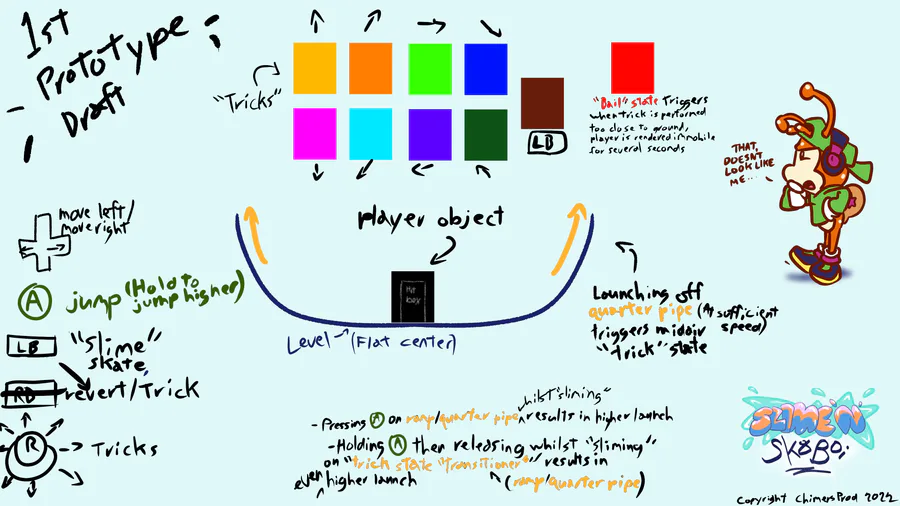 1st
- Prototype -
Draft
"Tricks"
LB
"Bail" state Triggers
when trick is performed
too close to ground,
player is rendered immobile
for several seconds
THAT,
DOESN'T
LOOK LIKE
ME...
move left/
move right
A jump (Hold to
jump higher)
LB "Slime"
skate
RB revert/Trick
R Tricks
player object
Hit
boy
Level (Flat center)
Launching off
quarter pipe (At sufficient
speed)
triggers midair
"trick" state
- Pressing A on ramp/quarter pipe whilst "sliming" results in higher launch
- Holding A then releasing whilst "sliming"
on "trick state "transitioner"" results in
even higher launch
(ramp/quarter pipe)
SLIME N
SK8BOI
Copyright ChimersProd 2022